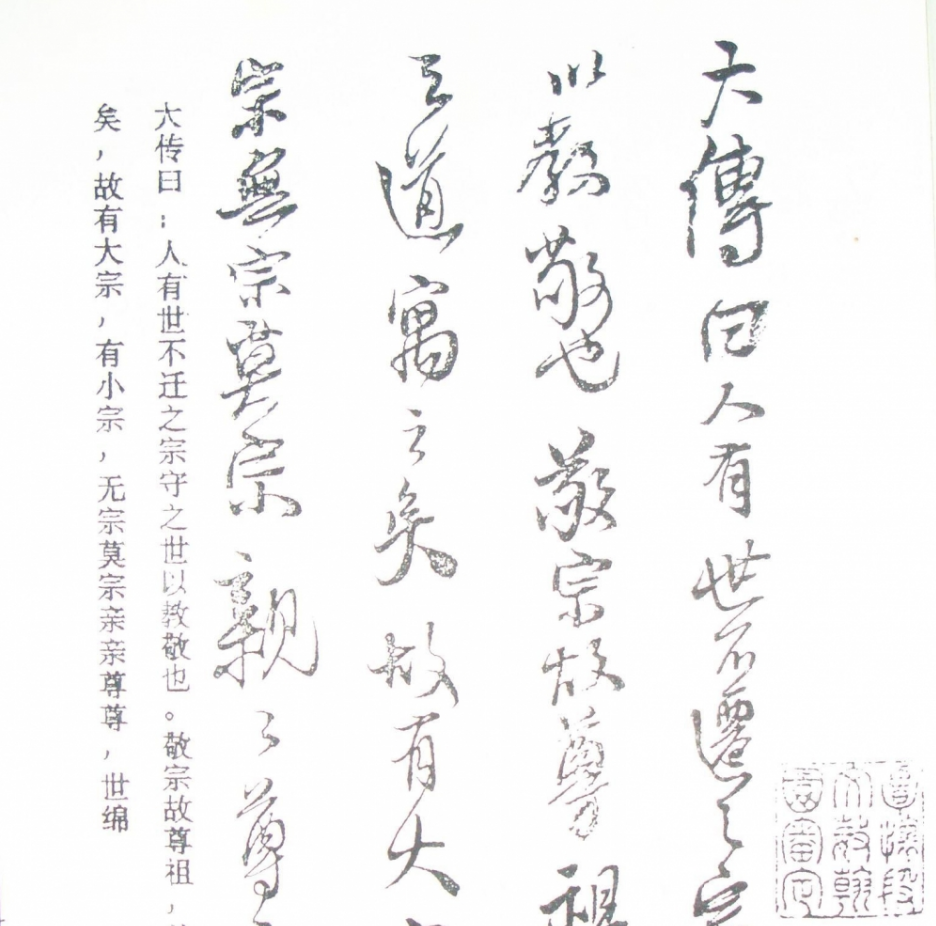 大傳曰人有世不遷之宗
以教敬也敬宗故尊祖
之道寓之矣故有大
宗無宗莫宗親々尊
大传曰：人有世不迁之宗守之世以教敬也。敬宗故尊祖，
矣，故有大宗，有小宗，无宗莫宗亲亲尊尊，世绵